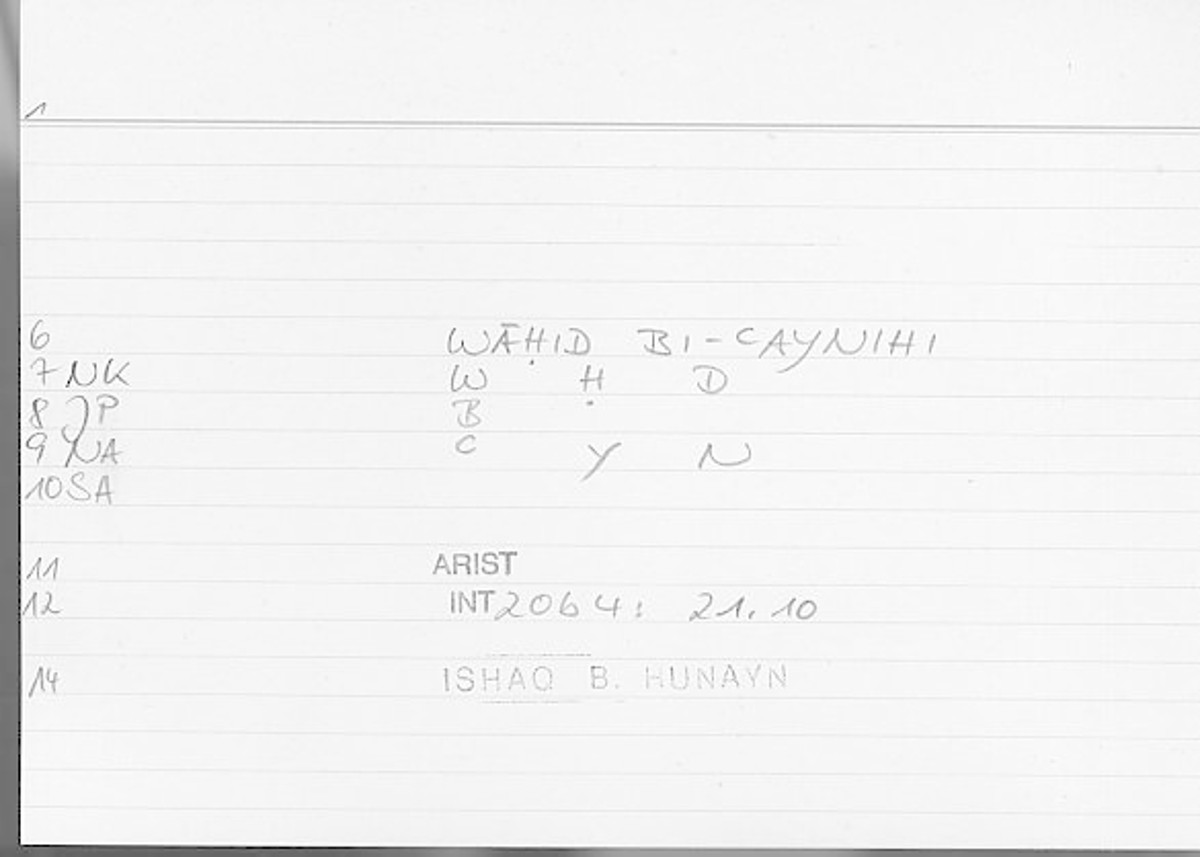 1
6 WĀḤID BI-CAYNIHI
7 NK W Ḥ D
8 JP B
9 NA C Y N
10 SA
11 ARIST
12 INT 2064: 21.10
14 ISHAQ B. HUNAYN